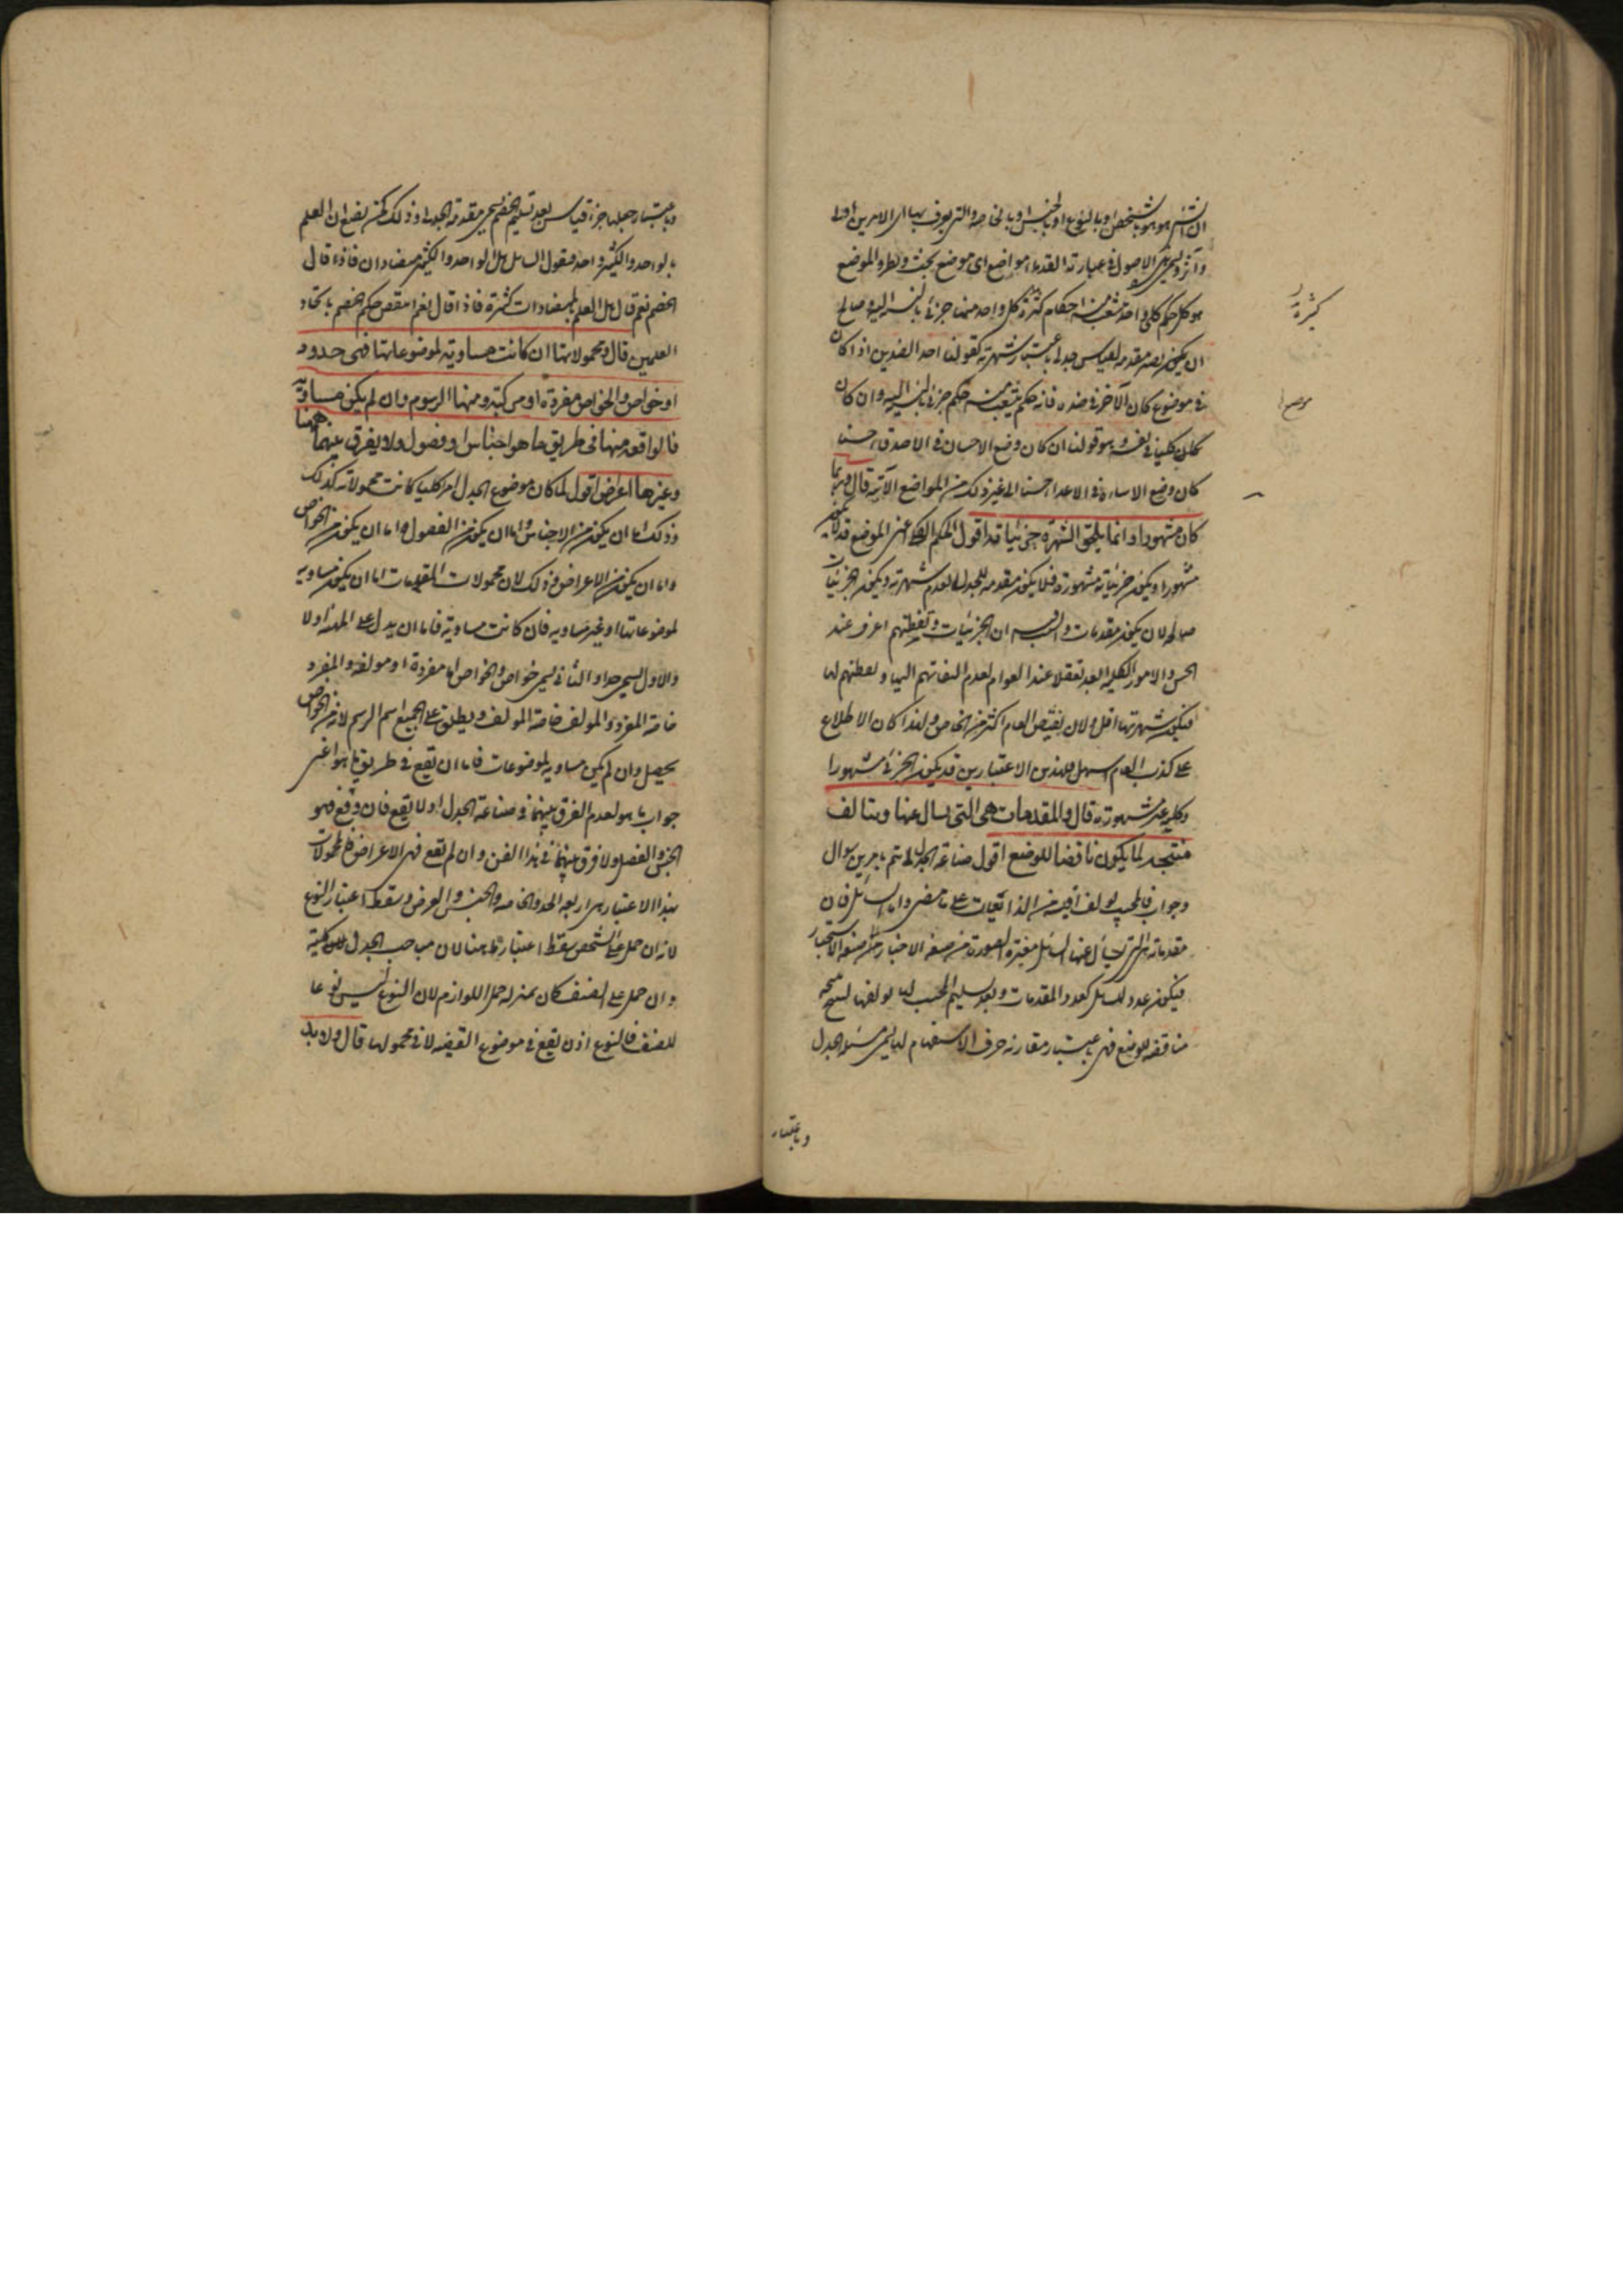 ان الشئ هو هو بالشخص او بالنوع او بالجنس او بالخاصة والتي يعرف بها ان الامرين
الاصول في عبارة القدماء مواضع اى موضع بحث ونظر والموضع
هو كل حكم كلى واحد متشعب منه احكام كثيرة كل واحد منها جزئى بالنسبة اليه وصالح
ان يكون مقدمة لقياس جدلى باعتبار شهرته كقولنا احد الضدين اذا كان
في موضوع كان الآخر في ضده فانه حكم يتشعب منه حكم جزئى بالنسبة اليه وان كان
كليا في نفسه هو قولنا ان كان وضع الاحسان في الاصدقاء حسنا
كان وضع الاساءة في الاعداء حسنا الى غير ذلك من المواضع الآتية قال وربما
كان مشهورا وانما يلحق الشهرة جزئياته اقول الحكم الكلى اعنى الموضع قد لا يكون
مشهورا ويكون جزئياته مشهورة فلا يكون مقدمة للجدل لعدم شهرته ويكون الجزئيات
صالحة لان يكون مقدمات والسبب ان الجزئيات اعرف عند
الحس والامور الكلية ابعد تعقلا عند العوام لعدم التفاتهم اليها
فيكون شهرتها اقل ولان نقيض العام اكثر من الخاص ولهذا كان الاطلاع
على كذب العام اسهل فلهذين الاعتبارين قد يكون الجزئى مشهورا
وكليه غير مشهورة قال والمقدمات هى التى يسال عنها ويتالف
منتجة لما يكون ناقضا للوضع اقول صناعة الجدل انما تتم بامرين سوال
وجواب فالمجيب يولف اقيسته من الذائعات على ما مضى واما السائل فان
مقدماته هى التى يسأل عنها السائل مغيرة الصورة من صيغة الاخبار الى صيغة الاستخبار
فيكون عدد المسائل كعدد المقدمات وبعد تسليم المجيب لها يولفها لينتج
مناقضة للوضع فهى باعتبار مقارنة حرف الاستفهام لها يسمى مسئلة الجدل
وباعتبار
كثيرة
موضع
وباعتبار جعلها جزء قياس بعد تسليم الخصم يسمى مقدمة الجدل وذلك كمن يضع ان العلم
بالواحد والكثير واحد فيقول السائل هل الواحد والكثير متضادان فاذا قال
الخصم نعم قال هل العلم بالمتضادات كثيرة فاذا قال نعم انتقض حكم الخصم باتحاد
العلمين قال ومحمولاتها ان كانت مساوية لموضوعاتها فهى حدود
او خواص والخواص مفردة او مركبة ومنها الرسوم وان لم يكن مساوية
فالواقعة منها في طريق ما هو اجناس او فصول ولا يفرق بينهما ههنا
وغيرها اعراض اقول لما كان موضوع الجدل امرا كليا كانت محمولاته كذلك
وذلك اما ان يكون من الاجناس واما ان يكون من الفصول واما ان يكون من الخواص
واما ان يكون من الاعراض وذلك لان محمولات المقدمات اما ان يكون مساوية
لموضوعاتها او غير مساوية فان كانت مساوية فاما ان يدل على المهية اولا
والاول يسمى حدا والثانى يسمى خواص والخواص اما مفردة او مولفة والمفرد
خاصة المفردة والمولف خاصة المولف ويطلق على الجميع اسم الرسم لانه من الخواص
يحصل وان لم يكن مساوية للموضوعات فاما ان يقع في طريق ما هو اعنى
جواب ما هو لعدم الفرق بينهما في صناعة الجدل اولا يقع فان وقع فهو
الجنس والفصل ولا فرق بينهما في هذا الفن وان لم يقع فهى الاعراض فالمحمولات
بهذا الاعتبار هى اربعة الحد والخاصة والجنس والعرض وسقط اعتبار النوع
لانه ان حمل على الشخص سقط اعتباره ههنا لان مباحث الجدل كلية
وان حمل على الصنف كان بمنزلة حمل اللوازم لان النوع ليس نوعا
للصنف فالنوع اذن يقع في موضوع القضية لا في محمولها قال ولابد